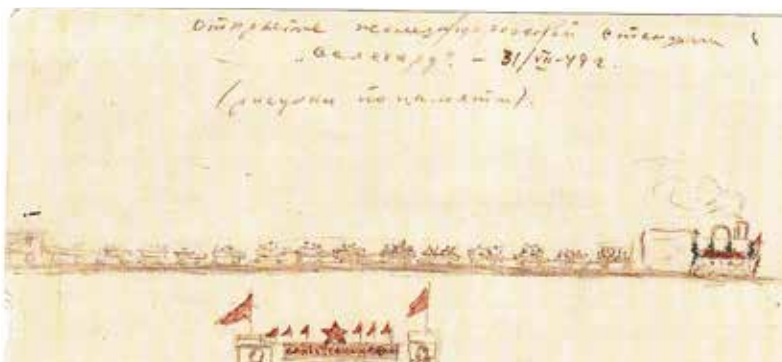 Открытие железнодорожной станции
"Салехард" - 31/VII-49 г.
(рисунки по памяти).